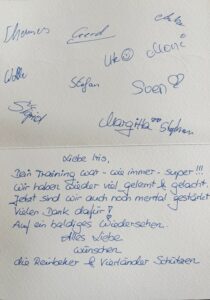 Thomas Gerd
Ute ☺ Moni
Stefan Sven ♡
Sigrid
Margitta Stephan
Liebe Iris,
Dein Training war - wie immer - super!!!
Wir haben wieder viel gelernt & gelacht.
Jetzt sind wir auch noch mental gestärkt
Vielen Dank dafür!
Auf ein baldiges Wiedersehen.
Alles Liebe
wünschen
die Reinbeker & Vierländer Schützen